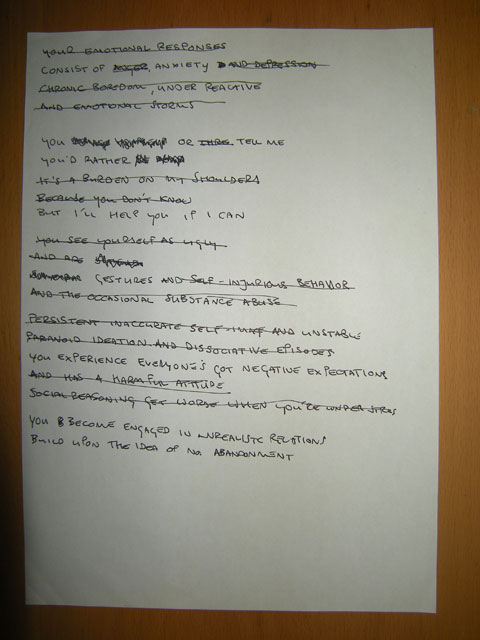 YOUR EMOTIONAL RESPONSES
CONSIST OF ANGER, ANXIETY AND DEPRESSION
CHRONIC BOREDOM, UNDER REACTIVE
AND EMOTIONAL STORMS
YOU OR TELL ME
YOU'D RATHER
IT'S A BURDEN ON MY SHOULDERS
BECAUSE YOU DON'T KNOW
BUT I'LL HELP YOU IF I CAN
YOU SEE YOURSELF AS UGLY
AND ARE
GESTURES AND SELF-INJURIOUS BEHAVIOR
AND THE OCCASIONAL SUBSTANCE ABUSE
PERSISTENT INACCURATE SELF- AND UNSTABLE
PARANOID IDEATION AND DISSOCIATIVE EPISODES
YOU EXPERIENCE EVERYONE'S GOT NEGATIVE EXPECTATIONS
AND HAS A HARMFUL ATTITUDE
SOCIAL REASONING GET WORSE WHEN YOU'RE UNDER STRESS
YOU BECOME ENGAGED IN UNREALISTIC RELATIONS
BUILD UPON THE IDEA OF NO ABANDONMENT